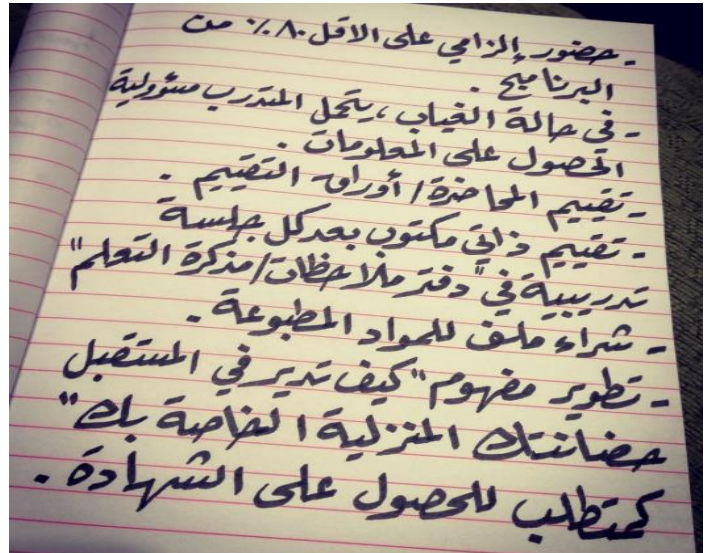 - حضور إلزامي على الاقل ٨٠٪ من
البرنامج .
- في حالة الغياب ، يتحمل المتدرب مسؤولية
الحصول على المعلومات .
- تقييم المحاضرة / أوراق التقييم .
- تقييم ذاتي مكتوب بعد كل جلسة
تدريبية في "دفتر ملاحظات/مذكرة التعلم"
- شراء ملف للمواد المطبوعة .
- تطوير مفهوم "كيف تدير في المستقبل
حضانتك المنزلية الخاصة بك"
كمتطلب للحصول على الشهادة .